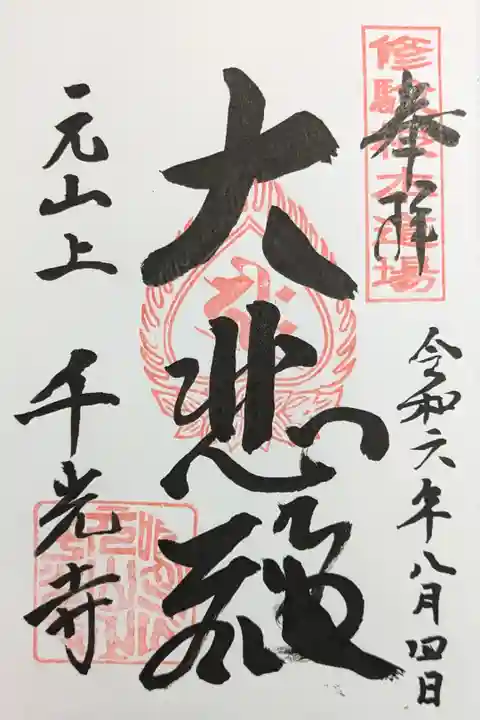 修験根本道場
奉拝
令和六年八月四日
大悲殿
元山上 千光寺